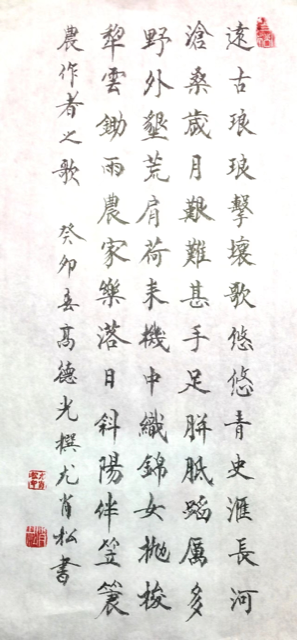 遠古琅琅擊壤歌悠悠青史滙長河
滄桑歲月艱難甚手足胼胝蹈厲多
野外墾荒肩荷耒機中織錦女抛梭
犂雲鋤雨農家樂落日斜陽伴笠蓑
農作者之歌 癸卯春高德光撰尤肖松書